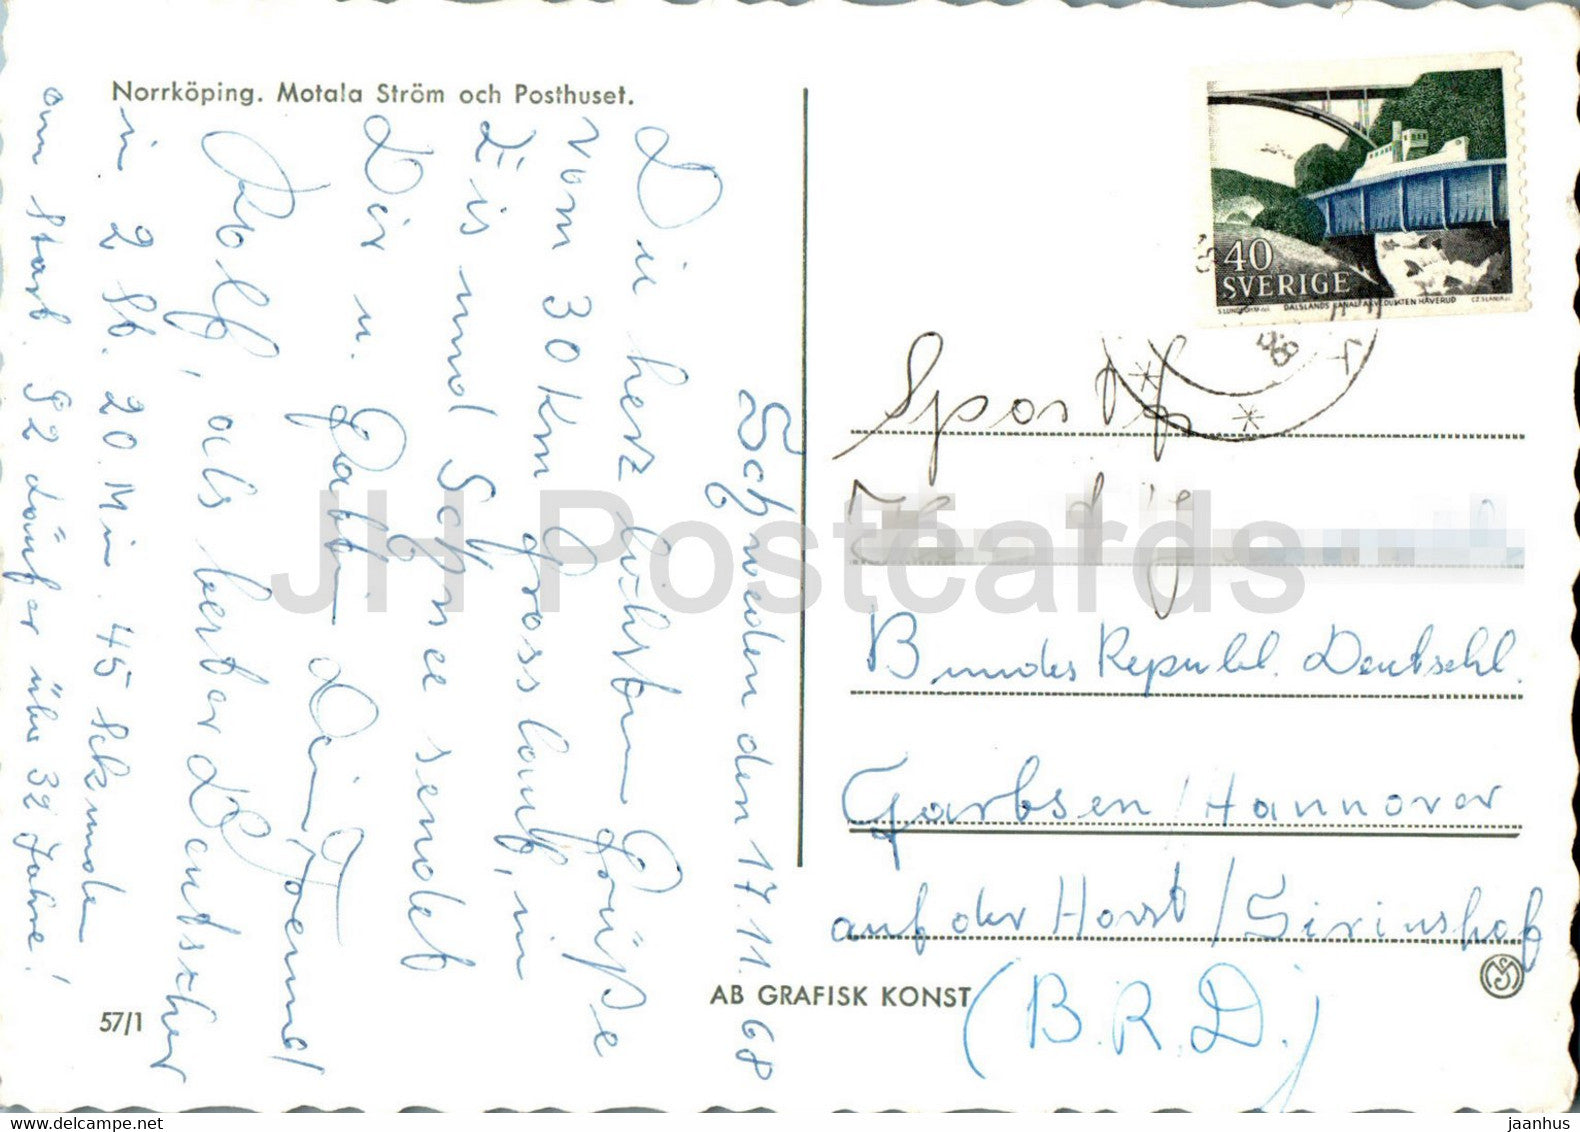 Norrköping. Motala Ström och Posthuset.
Schweden den 17.11.68
Die herzlichsten Grüße
vom 30 Km Grosslauf, in
Eis und Schnee sendet
Dir u. Gattin Dein Freund
Rolf, als bester Deutscher
in 2 St. 20. Min. 45 Sekunden
am Start 92 Läufer über 32 Jahre!
57/1
AB GRAFISK KONST
40
SVERIGE
DALSLANDS KANAL AKVEDUKTEN HÅVERUD
CZ SLANIA sc.
68
Sport
Bundes Republ. Deutschl.
Garbsen / Hannover
auf der Horst / Siriushof
(B.R.D.)
JH Postcards
www.delcampe.net
jaanhus